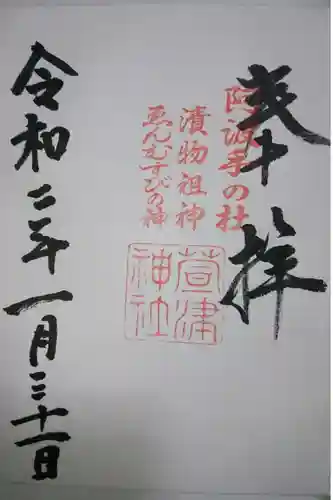 奉拝
阿波手の杜
漬物祖神
ゑんむすびの神
萱津
神社
令和二年一月三十一日